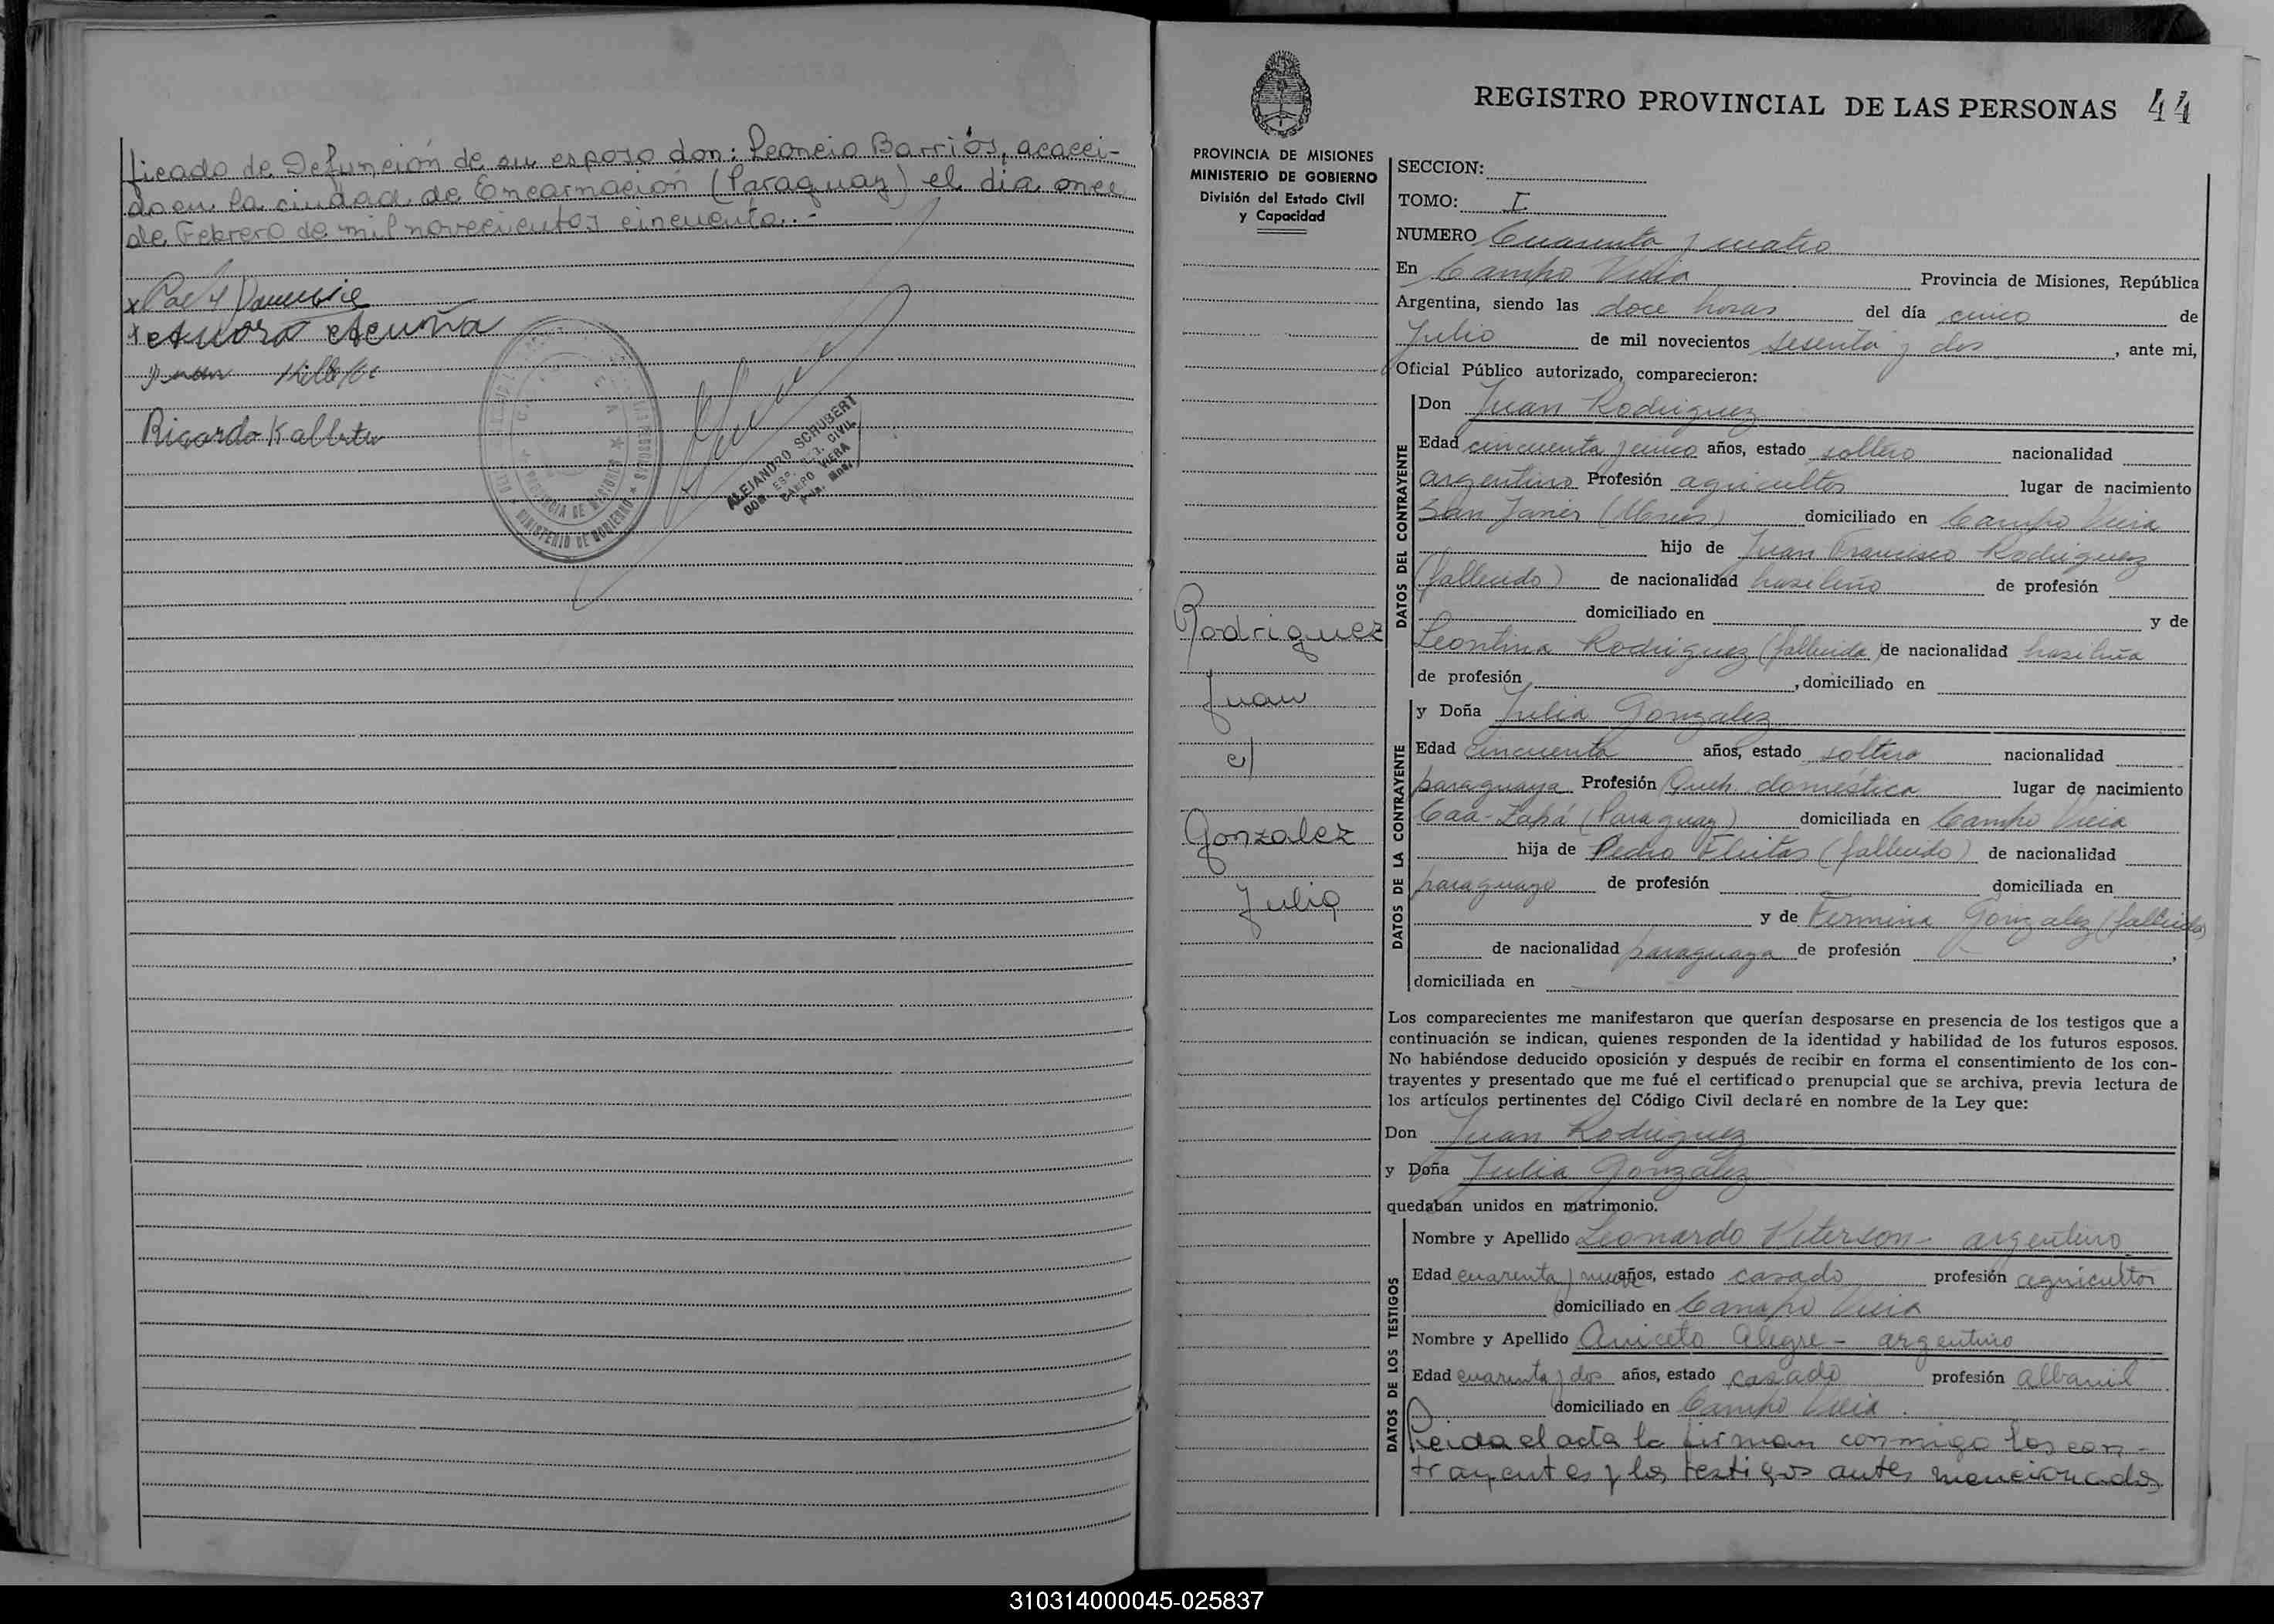 ficado de Defunción de su esposo don: Leoncio Barrios, acaeci-
do en la ciudad de Encarnación (Paraguay) el dia once
de Febrero de mil novecientos cincuenta.-
x
+ Aurora Acuña
Juan
Ricardo Kallsten
MINISTERIO DE GOBIERNO
PROVINCIA DE MISIONES
ALEJANDRO SCHUBERT
CAMPO VIERA
REGISTRO PROVINCIAL DE LAS PERSONAS 44
PROVINCIA DE MISIONES
MINISTERIO DE GOBIERNO
División del Estado Civil
y Capacidad
Rodriguez
Juan
c/
Gonzalez
Julia
SECCION:
TOMO: I
NUMERO Cuarenta y cuatro
En Campo Viera Provincia de Misiones, República
Argentina, siendo las doce horas del día cinco de
Julio de mil novecientos sesenta y dos, ante mi,
Oficial Público autorizado, comparecieron:
DATOS DEL CONTRAYENTE
Don Juan Rodriguez
Edad cincuenta y cinco años, estado soltero nacionalidad
argentino Profesión agricultor lugar de nacimiento
San Javier (Mnes) domiciliado en Campo Viera
hijo de Juan Francisco Rodriguez
(fallecido) de nacionalidad brasileño de profesión
domiciliado en y de
Leontina Rodriguez (fallecida) de nacionalidad brasileña
de profesión , domiciliado en
DATOS DE LA CONTRAYENTE
y Doña Julia Gonzalez
Edad cincuenta años, estado soltera nacionalidad
paraguaya Profesión Queh. doméstica lugar de nacimiento
Caa-Zapá (Paraguay) domiciliada en Campo Viera
hija de Pedro Fleitas (fallecido) de nacionalidad
paraguayo de profesión domiciliada en
y de Fermina Gonzalez (fallecida)
de nacionalidad paraguaya de profesión ,
domiciliada en
Los comparecientes me manifestaron que querían desposarse en presencia de los testigos que a
continuación se indican, quienes responden de la identidad y habilidad de los futuros esposos.
No habiéndose deducido oposición y después de recibir en forma el consentimiento de los con-
trayentes y presentado que me fué el certificado prenupcial que se archiva, previa lectura de
los artículos pertinentes del Código Civil declaré en nombre de la Ley que:
Don Juan Rodriguez
y Doña Julia Gonzalez
quedaban unidos en matrimonio.
DATOS DE LOS TESTIGOS
Nombre y Apellido Leonardo Peterson - argentino
Edad cuarenta y nueve años, estado casado profesión agricultor
domiciliado en Campo Viera
Nombre y Apellido Aniceto Alegre - argentino
Edad cuarenta y dos años, estado casado profesión albanil
domiciliado en Campo Viera.
Leida el acta la firman conmigo los con-
trayentes y los testigos antes mencionados
310314000045-025837